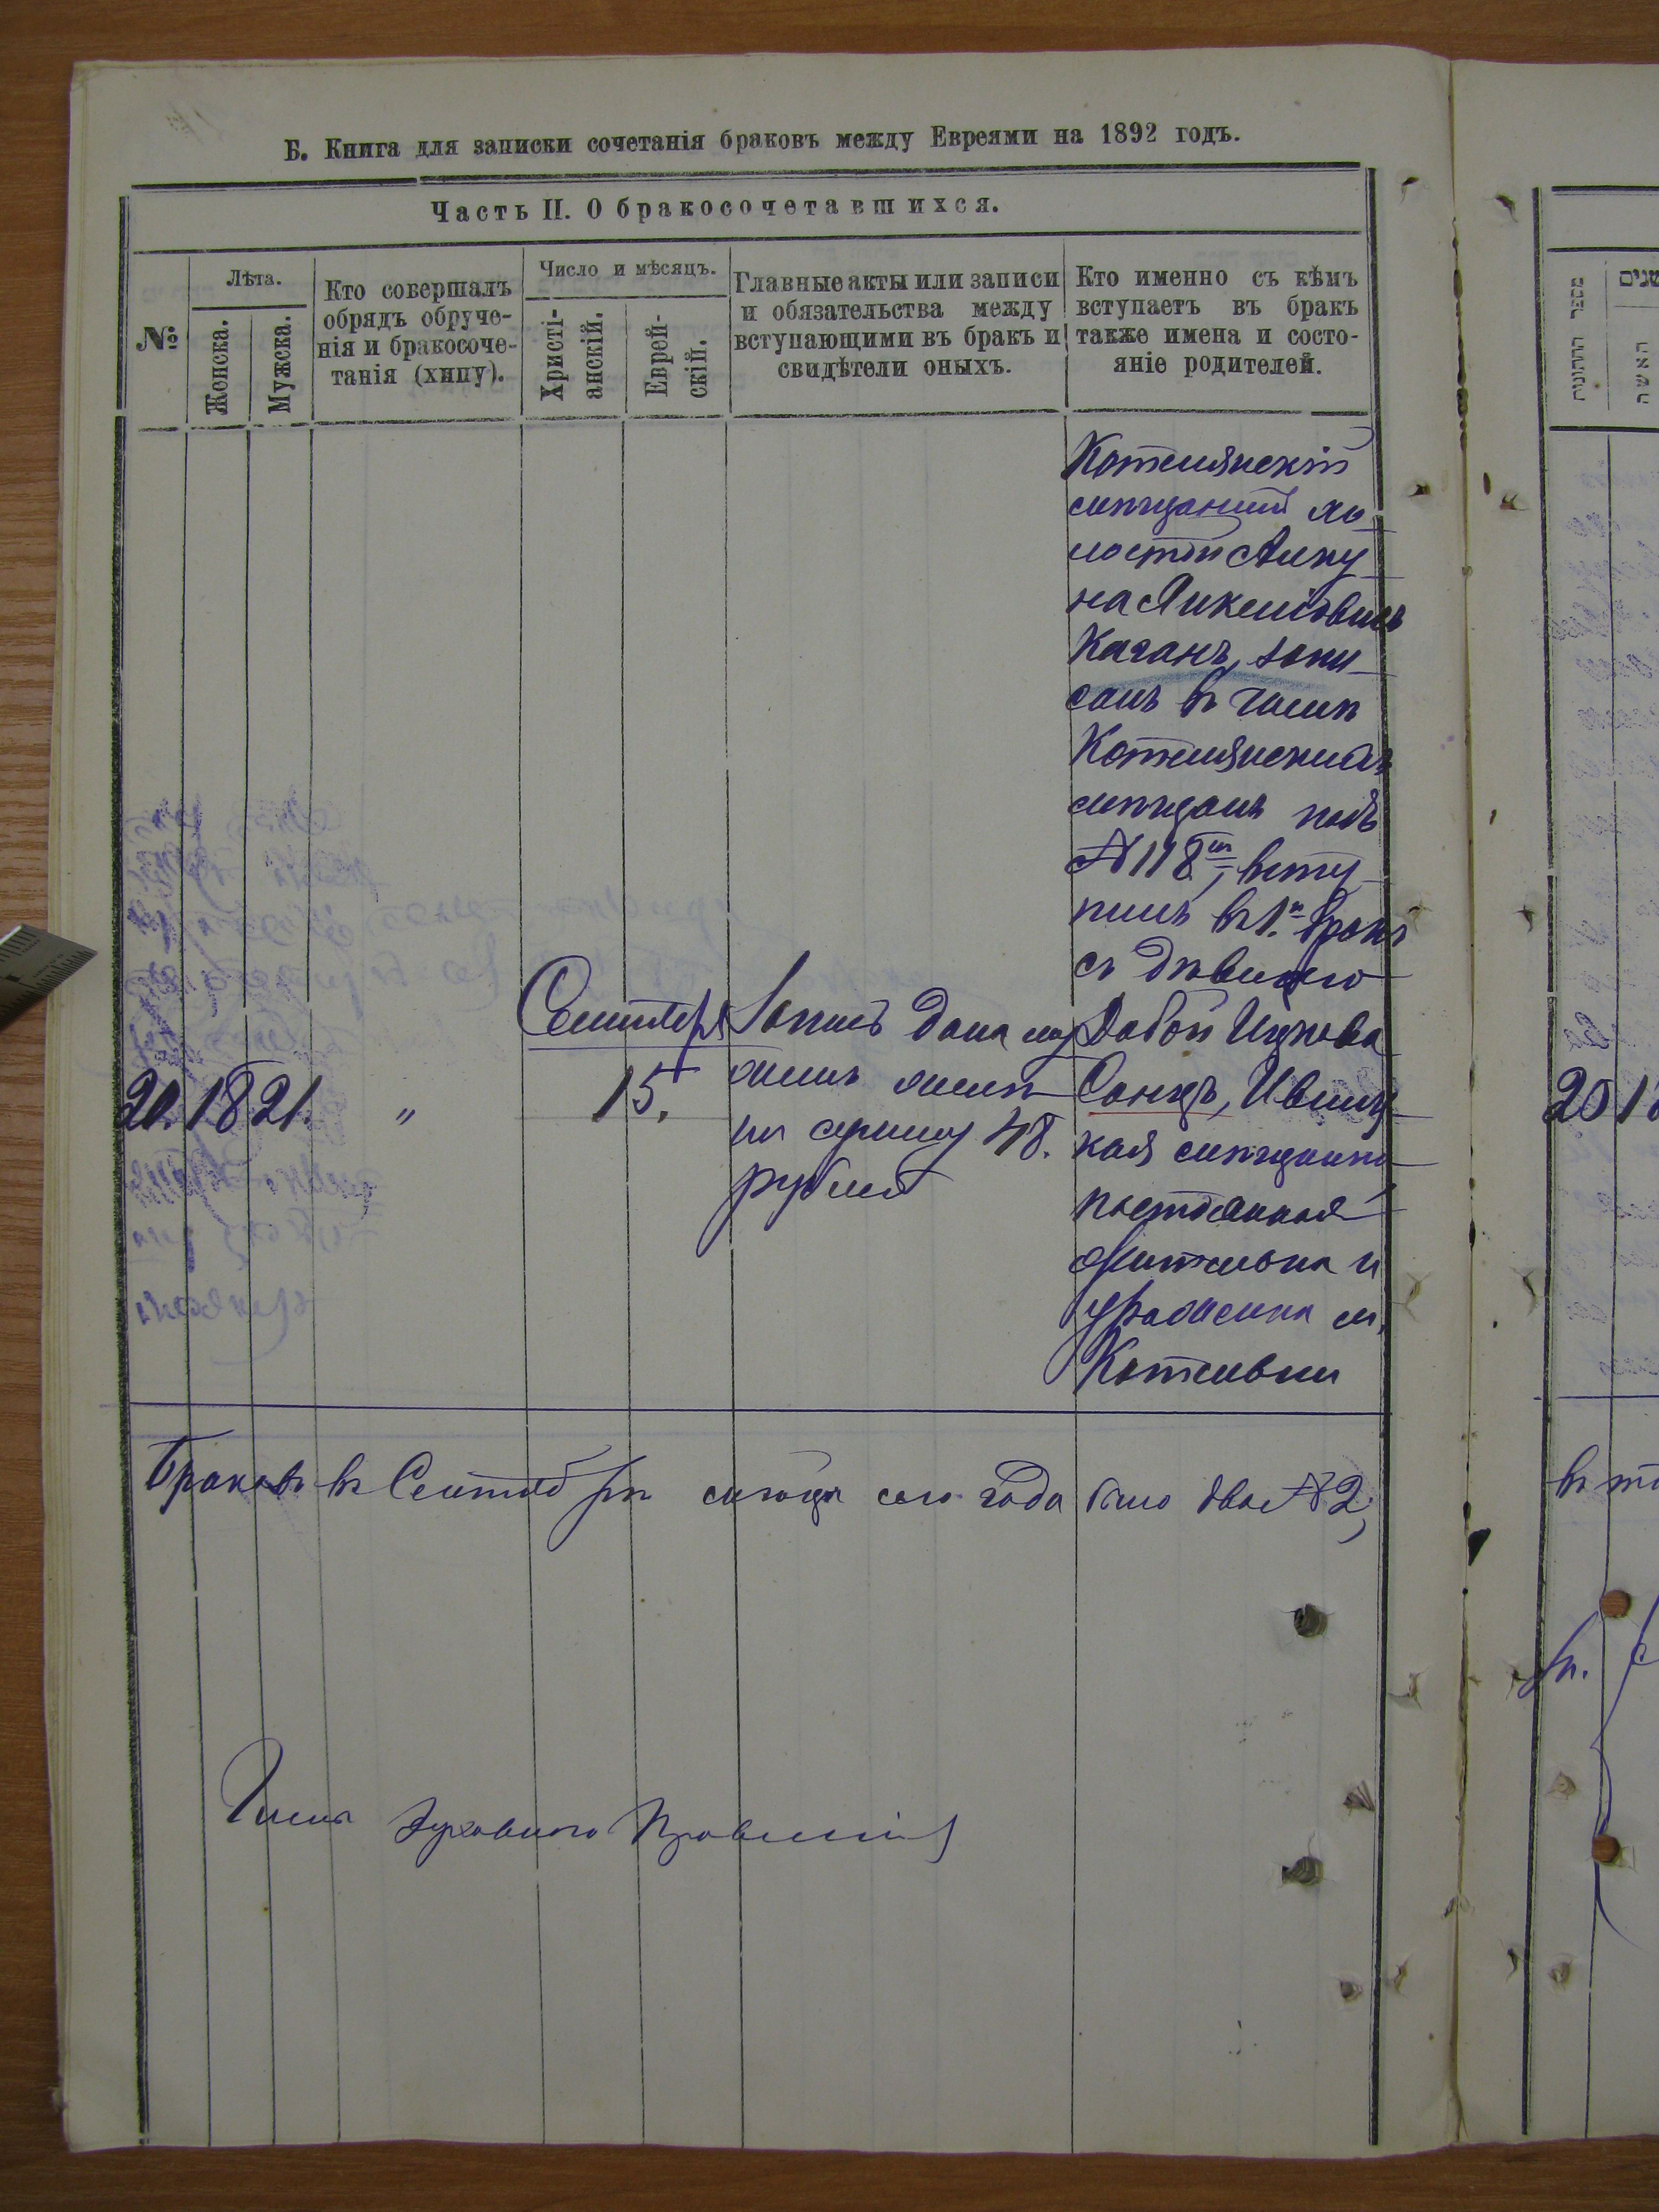 Б. Книга для записки сочетанія браковъ между Евреями на 1892 годъ.
Часть II. О бракосочетавшихся.
№
Лѣта.
Женска.
Мужска.
Кто совершалъ
обрядъ обруче-
нія и бракосоче-
танія (хипу).
Число и мѣсяцъ.
Христі-
анскій.
Еврей-
скій.
Главные акты или записи
и обязательства между
вступающими въ бракъ и
свидѣтели оныхъ.
Кто именно съ кѣмъ
вступаетъ въ бракъ
также имена и состо-
яніе родителей.
20. 18 21. „
Сентябр
15.
Запись дана му
жемъ женѣ
на сумму 48.
рублей
Котелянскій
мѣщанинъ хо
лостой
на
Каганъ, запи
санъ въ числѣ
Котелянскихъ
мѣщанъ подъ
№ 118, всту
пилъ въ 1. бракъ
съ дѣвицею
Добой Ицкова
кая мѣщанка
постоянная
жителька и
уроженка м.
Котельни
Браковъ въ Сентябрѣ мѣсяцѣ сего года было два № 2,
Члены Духовного Правленія
מספר החתונות
האשה
שנים
20 18
въ